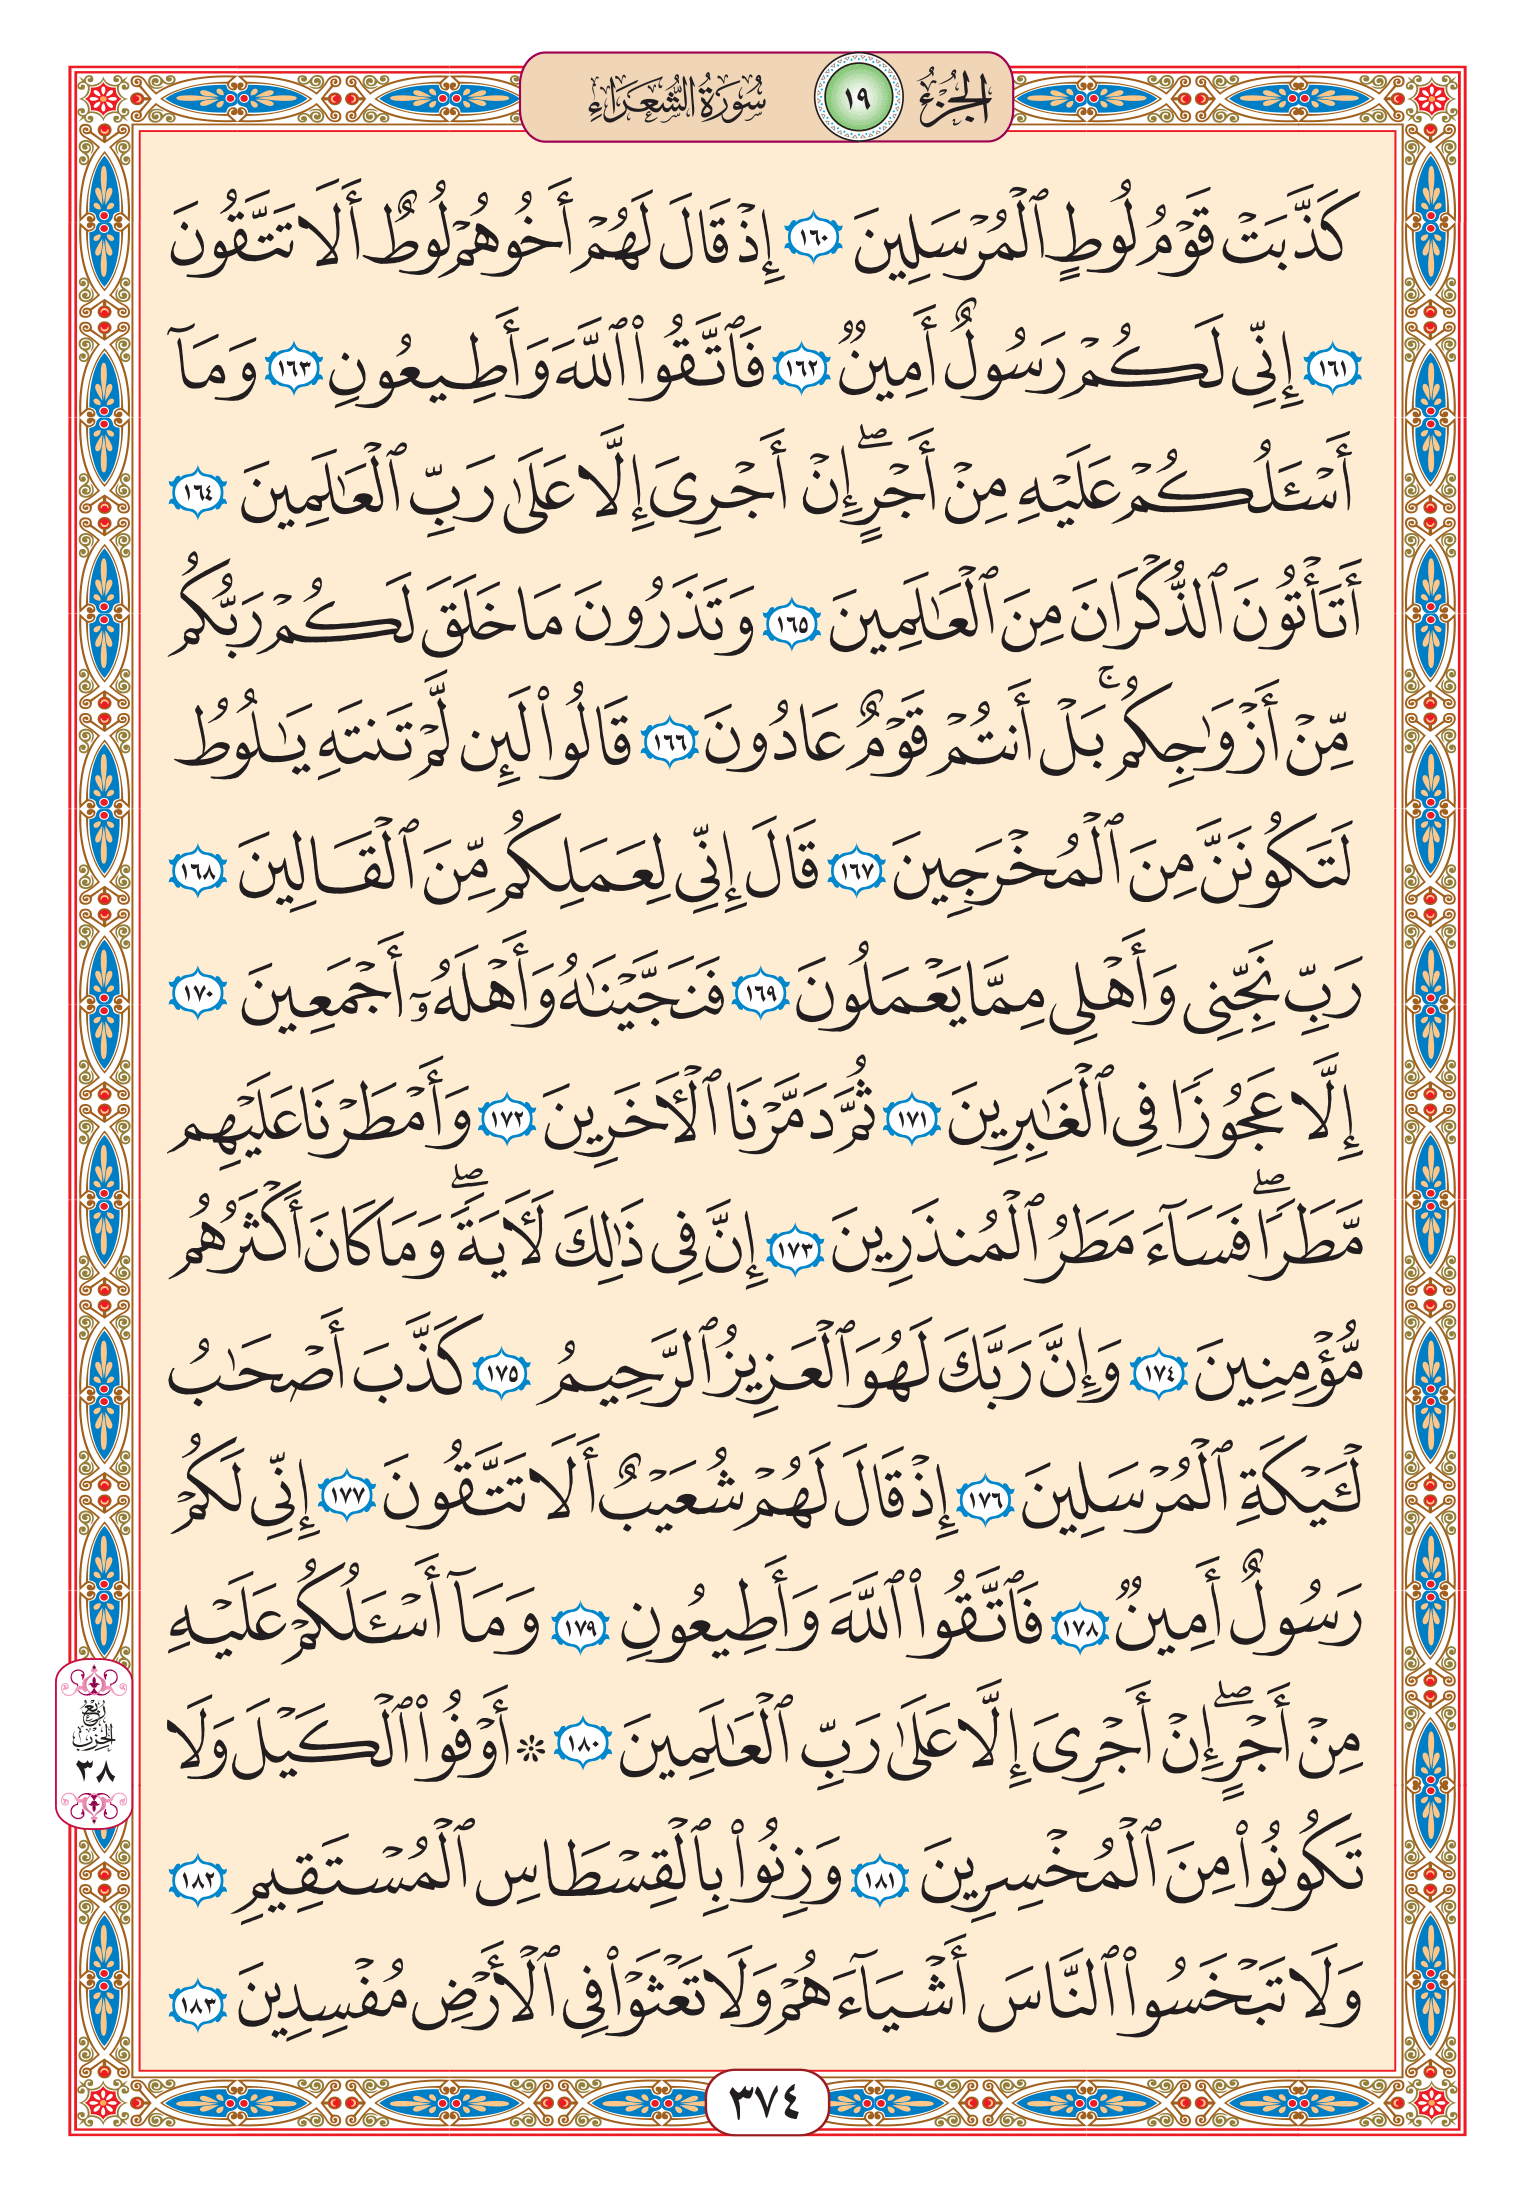 الجزء ١٩ سورة الشعراء
كَذَّبَتْ قَوْمُ لُوطٍ ٱلْمُرْسَلِينَ ١٦٠ إِذْ قَالَ لَهُمْ أَخُوهُمْ لُوطٌ أَلَا تَتَّقُونَ
١٦١ إِنِّى لَكُمْ رَسُولٌ أَمِينٌ ١٦٢ فَٱتَّقُوا۟ ٱللَّهَ وَأَطِيعُونِ ١٦٣ وَمَآ
أَسْـَٔلُكُمْ عَلَيْهِ مِنْ أَجْرٍ ۖ إِنْ أَجْرِىَ إِلَّا عَلَىٰ رَبِّ ٱلْعَـٰلَمِينَ ١٦٤
أَتَأْتُونَ ٱلذُّكْرَانَ مِنَ ٱلْعَـٰلَمِينَ ١٦٥ وَتَذَرُونَ مَا خَلَقَ لَكُمْ رَبُّكُم
مِّنْ أَزْوَٰجِكُم ۚ بَلْ أَنتُمْ قَوْمٌ عَادُونَ ١٦٦ قَالُوا۟ لَئِن لَّمْ تَنتَهِ يَـٰلُوطُ
لَتَكُونَنَّ مِنَ ٱلْمُخْرَجِينَ ١٦٧ قَالَ إِنِّى لِعَمَلِكُم مِّنَ ٱلْقَالِينَ ١٦٨
رَبِّ نَجِّنِى وَأَهْلِى مِمَّا يَعْمَلُونَ ١٦٩ فَنَجَّيْنَـٰهُ وَأَهْلَهُۥٓ أَجْمَعِينَ ١٧٠
إِلَّا عَجُوزًا فِى ٱلْغَـٰبِرِينَ ١٧١ ثُمَّ دَمَّرْنَا ٱلْـَٔاخَرِينَ ١٧٢ وَأَمْطَرْنَا عَلَيْهِم
مَّطَرًا ۖ فَسَآءَ مَطَرُ ٱلْمُنذَرِينَ ١٧٣ إِنَّ فِى ذَٰلِكَ لَـَٔايَةً ۖ وَمَا كَانَ أَكْثَرُهُم
مُّؤْمِنِينَ ١٧٤ وَإِنَّ رَبَّكَ لَهُوَ ٱلْعَزِيزُ ٱلرَّحِيمُ ١٧٥ كَذَّبَ أَصْحَـٰبُ
لْـَٔيْكَةِ ٱلْمُرْسَلِينَ ١٧٦ إِذْ قَالَ لَهُمْ شُعَيْبٌ أَلَا تَتَّقُونَ ١٧٧ إِنِّى لَكُمْ
رَسُولٌ أَمِينٌ ١٧٨ فَٱتَّقُوا۟ ٱللَّهَ وَأَطِيعُونِ ١٧٩ وَمَآ أَسْـَٔلُكُمْ عَلَيْهِ
مِنْ أَجْرٍ ۖ إِنْ أَجْرِىَ إِلَّا عَلَىٰ رَبِّ ٱلْعَـٰلَمِينَ ١٨٠ ۞ أَوْفُوا۟ ٱلْكَيْلَ وَلَا
ربع
الحزب
٣٨
تَكُونُوا۟ مِنَ ٱلْمُخْسِرِينَ ١٨١ وَزِنُوا۟ بِٱلْقِسْطَاسِ ٱلْمُسْتَقِيمِ ١٨٢
وَلَا تَبْخَسُوا۟ ٱلنَّاسَ أَشْيَآءَهُمْ وَلَا تَعْثَوْا۟ فِى ٱلْأَرْضِ مُفْسِدِينَ ١٨٣
٣٧٤